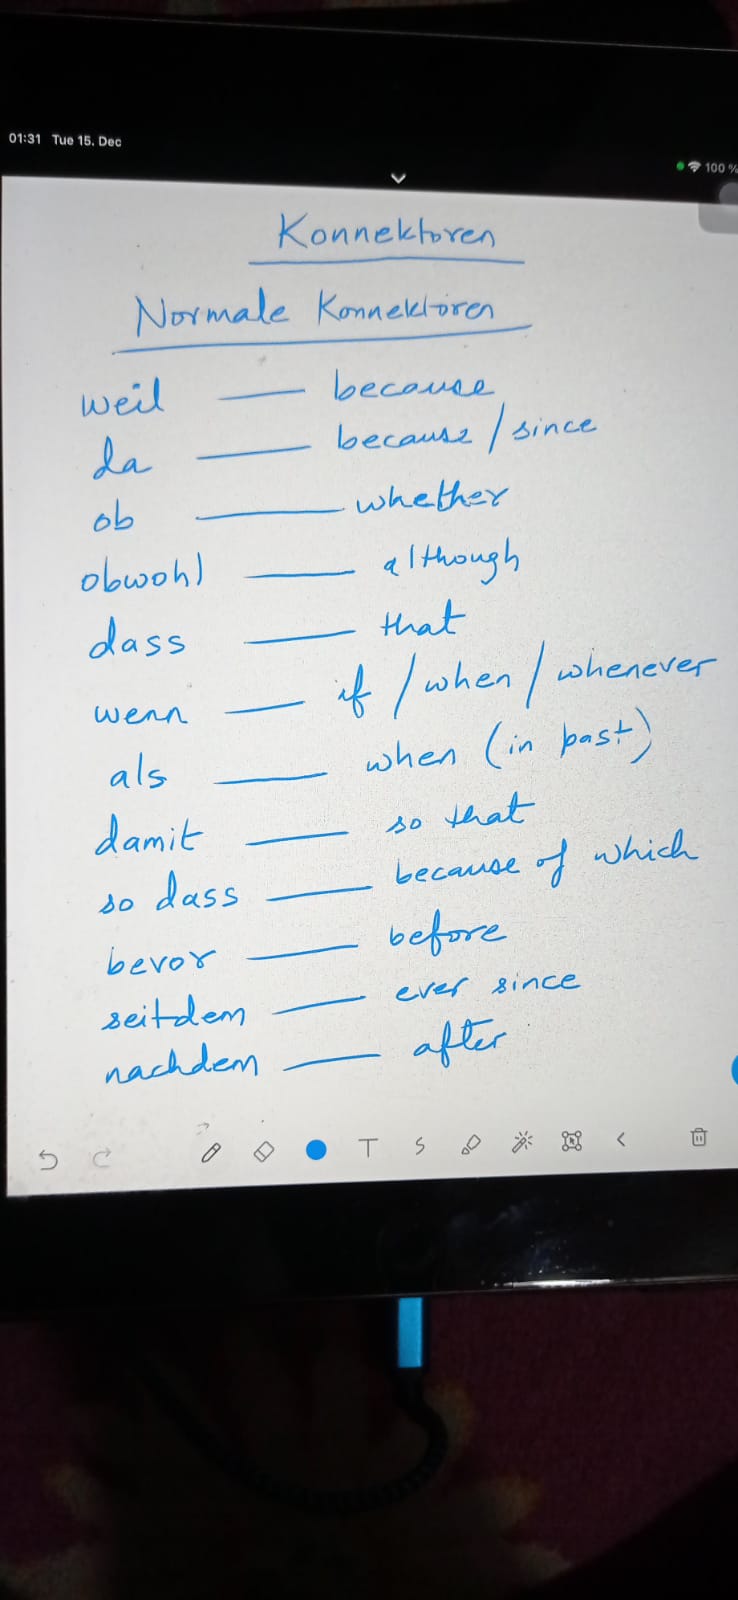 01:31 Tue 15. Dec
100 %
Konnektoren
Normale Konnektoren
weil — because
da — because / since
ob — whether
obwohl — although
dass — that
wenn — if / when / whenever
als — when (in past)
damit — so that
so dass — because of which
bevor — before
seitdem — ever since
nachdem — after
T S